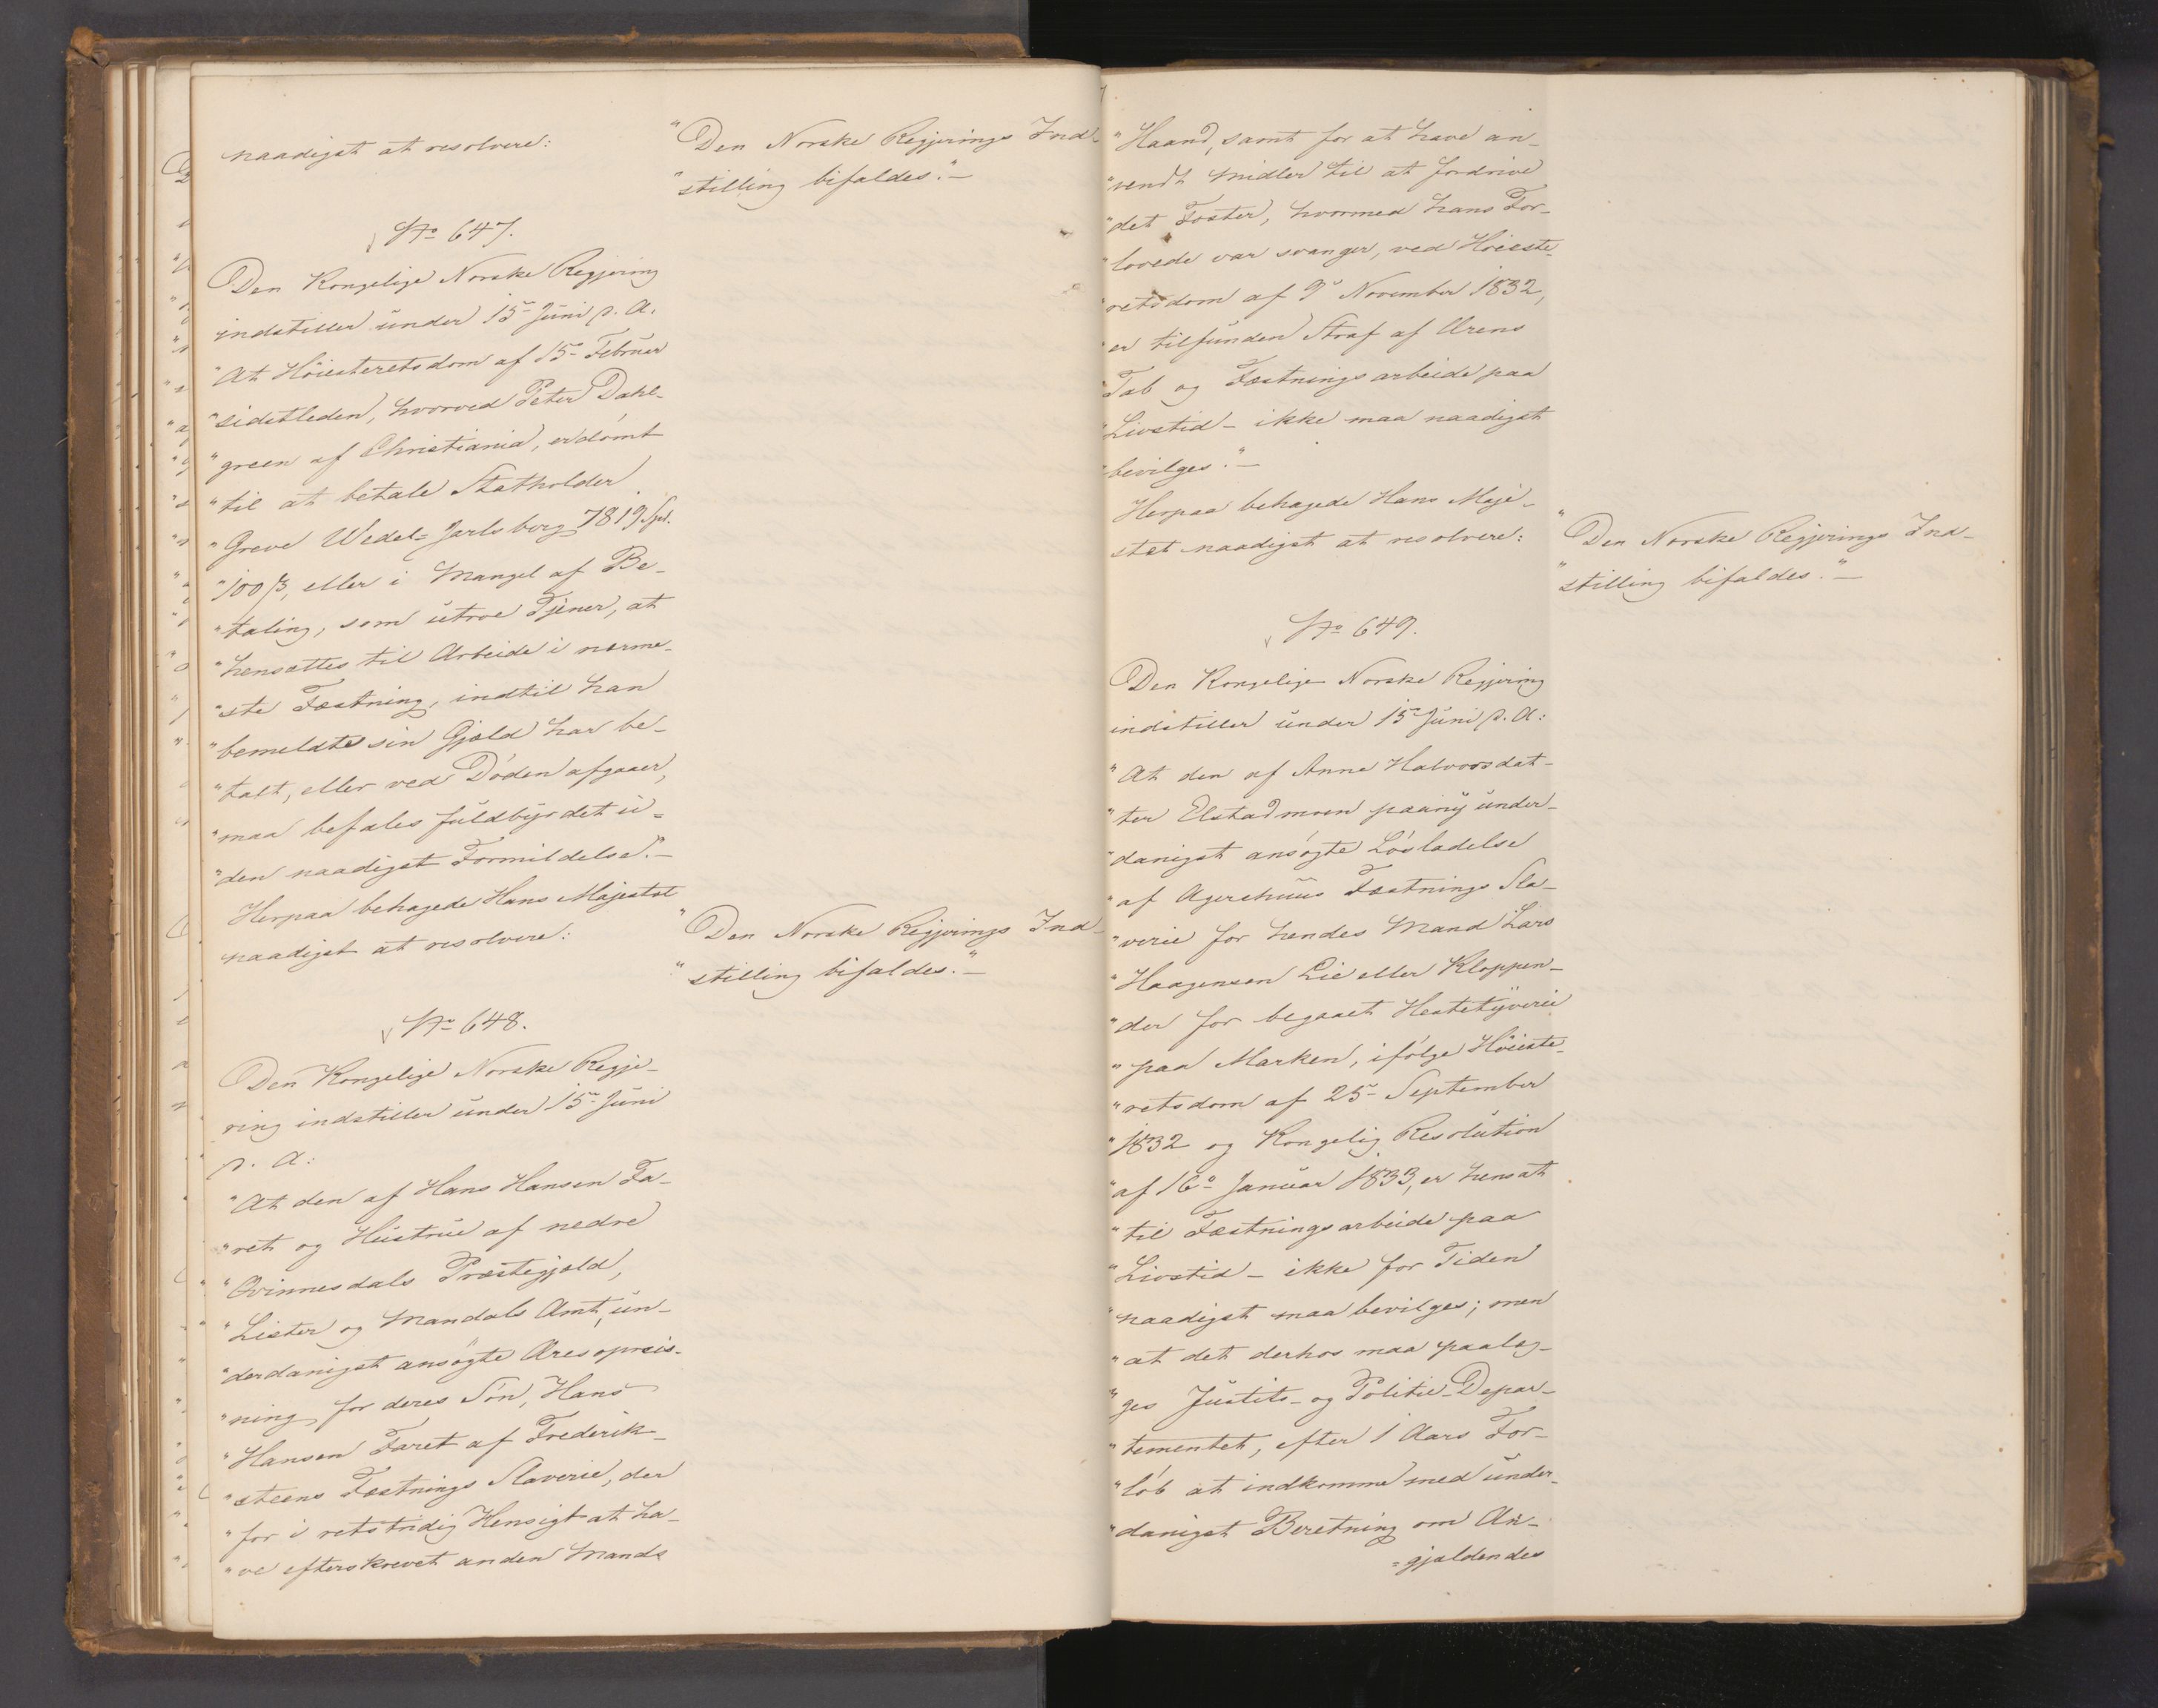 naadigst at resolvere:
"Den Norske Regjerings Ind-
"stilling bifaldes."-
No 647.
Den Kongelige Norske Regjering
indstiller under 15de Juni s. A.
"At Höiesteretsdom af 15de Februar
"sidstleden, hvorved Peter Dahl-
"green af Christiania, er dömt
"til at betale Statholder
"Greve Wedel=Jarlsberg 7819 Spd.
"100 ß, eller i Mangel af Be-
"taling, som utroe Tjener, at
"hensættes til Arbeide i nærme-
"ste Fæstning, indtil han
"bemeldte sin Gjæld har be-
"talt, eller ved Döden afgaaer,
"maa befales fuldbyrdet u-
"den naadigst Formildelse."-
Herpaa behagede Hans Majestæt
naadigst at resolvere:
"Den Norske Regjerings Ind-
"stilling bifaldes."-
No 648.
Den Kongelige Norske Regje-
ring indstiller under 15de Juni
s. A:
"At den af Hans Hansen Fa-
"ret og Hustrue af nedre
"Qvinnesdals Præstegjæld,
"Lister og Mandals Amt, un-
"derdanigst ansögte Æresopreis-
"ning for deres Sön, Hans
"Hansen Faret af Frederik-
"steens Fæstnings Slaverie, der
"for i retstridig Hensigt at ha-
"ve efterskrevet anden Mands
"Haand, samt for at have an-
"vendt Midler til at fordrive
"det Foster, hvormed hans For-
"lovede var svanger, ved Höieste-
"retsdom af 9de November 1832,
"er tilfunden Straf af Ærens
"Tab og Fæstningsarbeide paa
"Livstid - ikke maa naadigst
"bevilges."-
Herpaa behagede Hans Maje-
stæt naadigst at resolvere:
"Den Norske Regjerings Ind-
"stilling bifaldes."-
No 649.
Den Kongelige Norske Regjering
indstiller under 15de Juni s. A:
"At den af Anne Halvorsdat-
"ter Elstadmoen paany under-
"danigst ansögte Lösladelse
"af Agershuus Fæstnings Sla-
"verie for hendes Mand Lars
"Haagensen Lie eller Kloppen-
"der for begaaet Hestetyverie
"paa Marken, ifölge Höieste-
"retsdom af 25de September
"1832 og Kongelig Resolution
"af 16de Januar 1833, er hensat
"til Fæstningsarbeide paa
"Livstid - ikke for Tiden
"naadigst maa bevilges; men
"at det derhos maa paalæg-
"ges Justits- og Politie-Depar-
"tementet, efter 1 Aars For-
"löb at indkomme med under-
"danigst Beretning om An-
=gjældendes